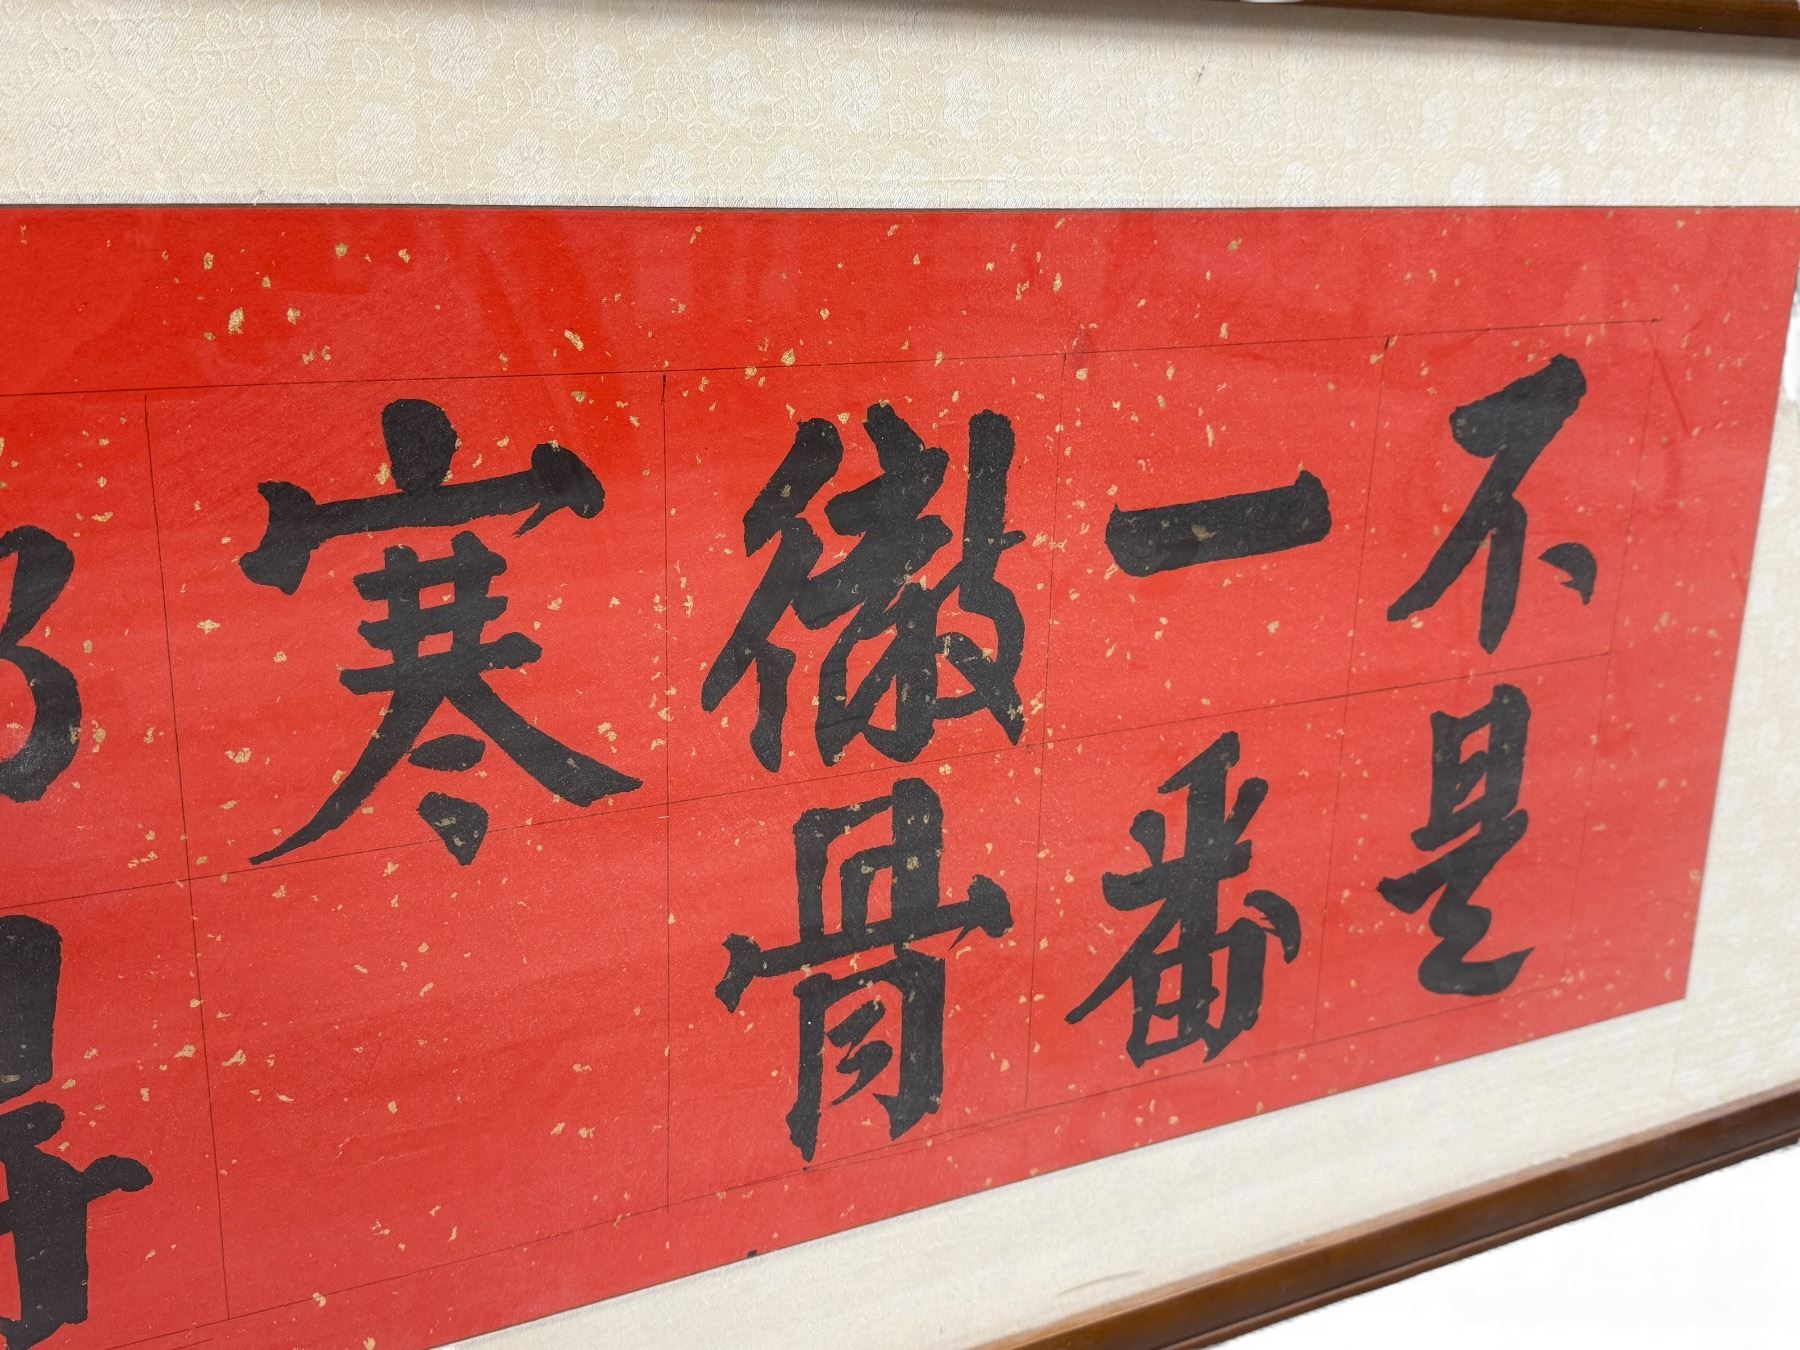 不是
一番
徹骨
寒